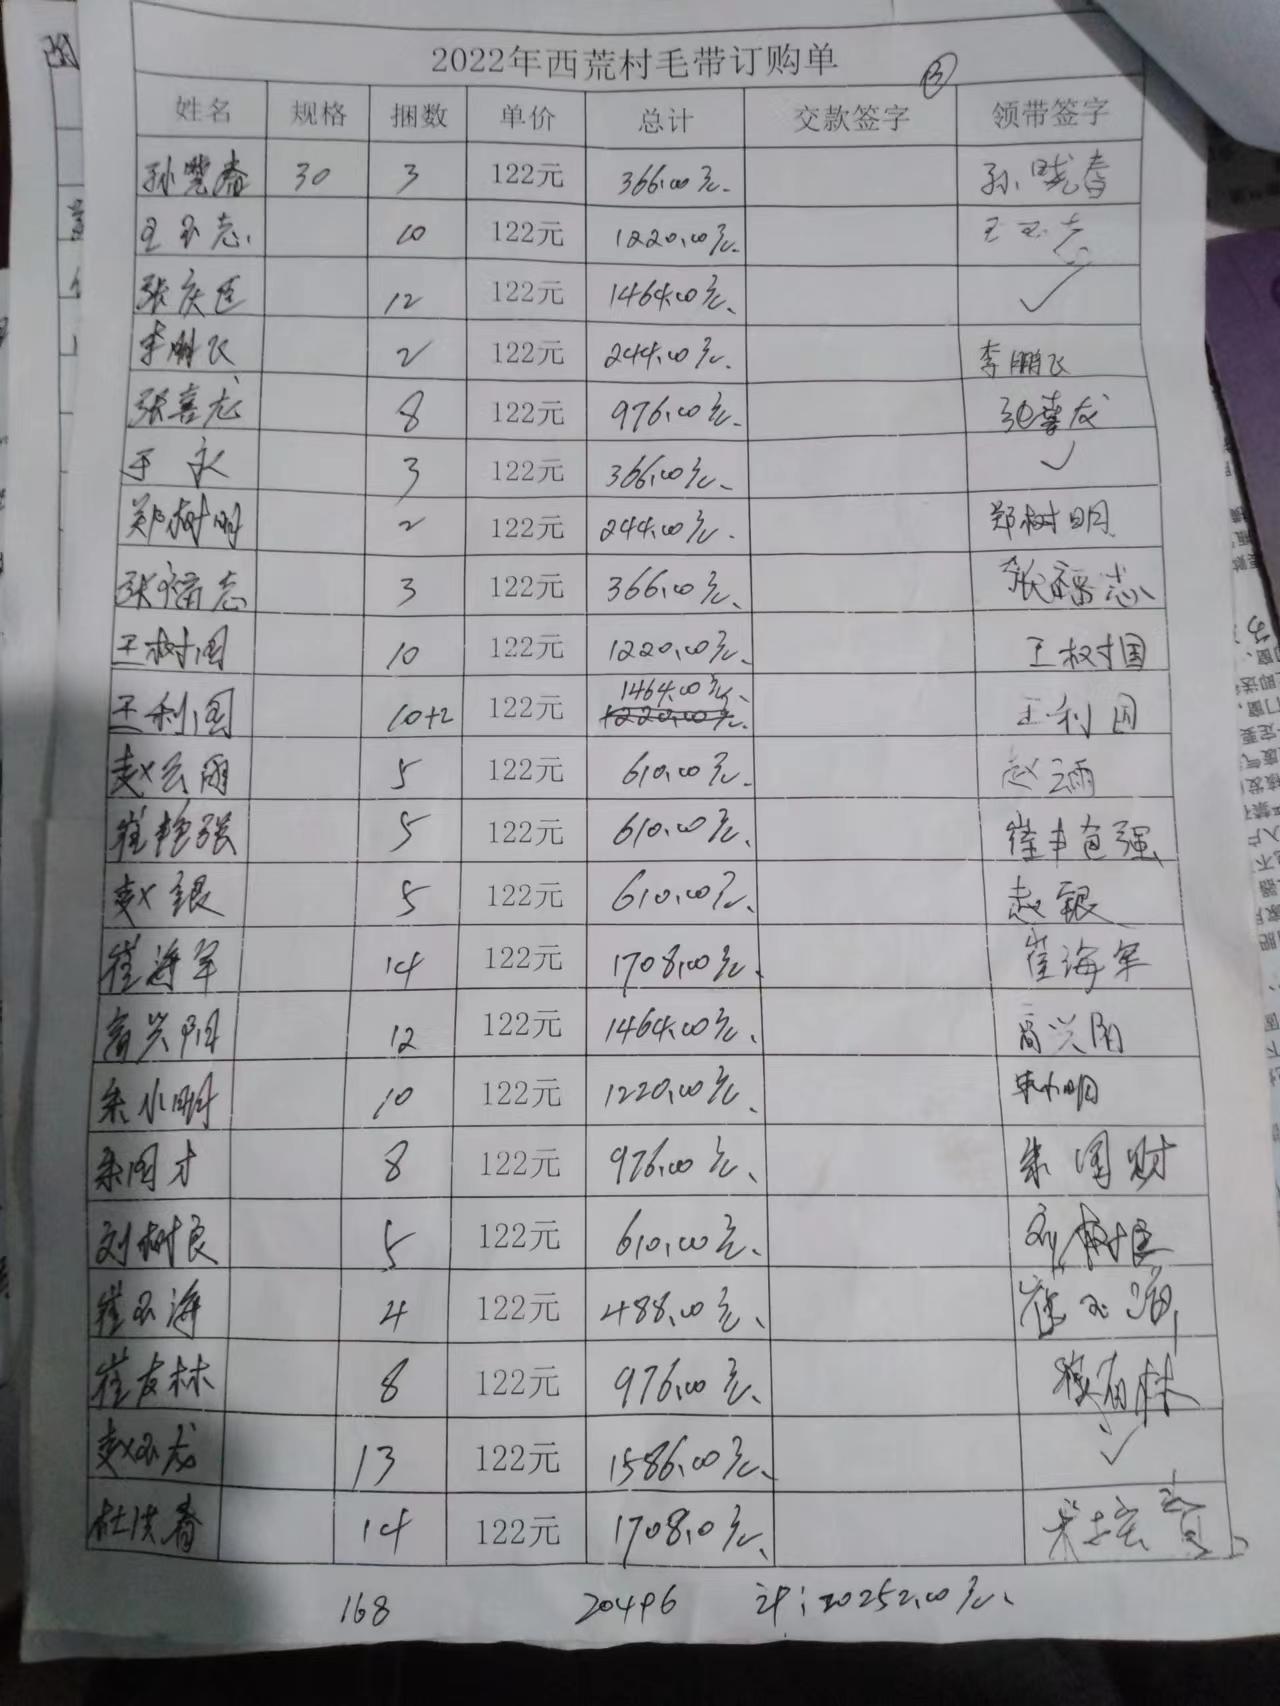 2022年西荒村毛带订购单
③
姓名 规格 捆数 单价 总计 交款签字 领带签字
孙晓春 30 3 122元 366.00元 孙晓春
王玉志 10 122元 1220.00元 王玉志
张庆臣 12 122元 1464.00元 ✓
李鹏飞 2 122元 244.00元 李鹏飞
张喜龙 8 122元 976.00元 张喜龙
于永 3 122元 366.00元 ✓
郑树明 2 122元 244.00元 郑树明
张福志 3 122元 366.00元 张福志
王树国 10 122元 1220.00元 王树国
王利国 10+2 122元 1464.00元 1220.00元 王利国
赵云雨 5 122元 610.00元 赵云雨
崔艳强 5 122元 610.00元 崔艳强
赵银 5 122元 610.00元 赵银
崔海军 14 122元 1708.00元 崔海军
高兴阳 12 122元 1464.00元 高兴阳
朱小明 10 122元 1220.00元 朱小明
朱国才 8 122元 976.00元 朱国财
刘树良 5 122元 610.00元 刘树良
崔玉海 4 122元 488.00元 崔玉海
崔友林 8 122元 976.00元 崔友林
赵玉龙 13 122元 1586.00元 ✓
杜洪春 14 122元 1708.0元
168 20496 计:20252.00元